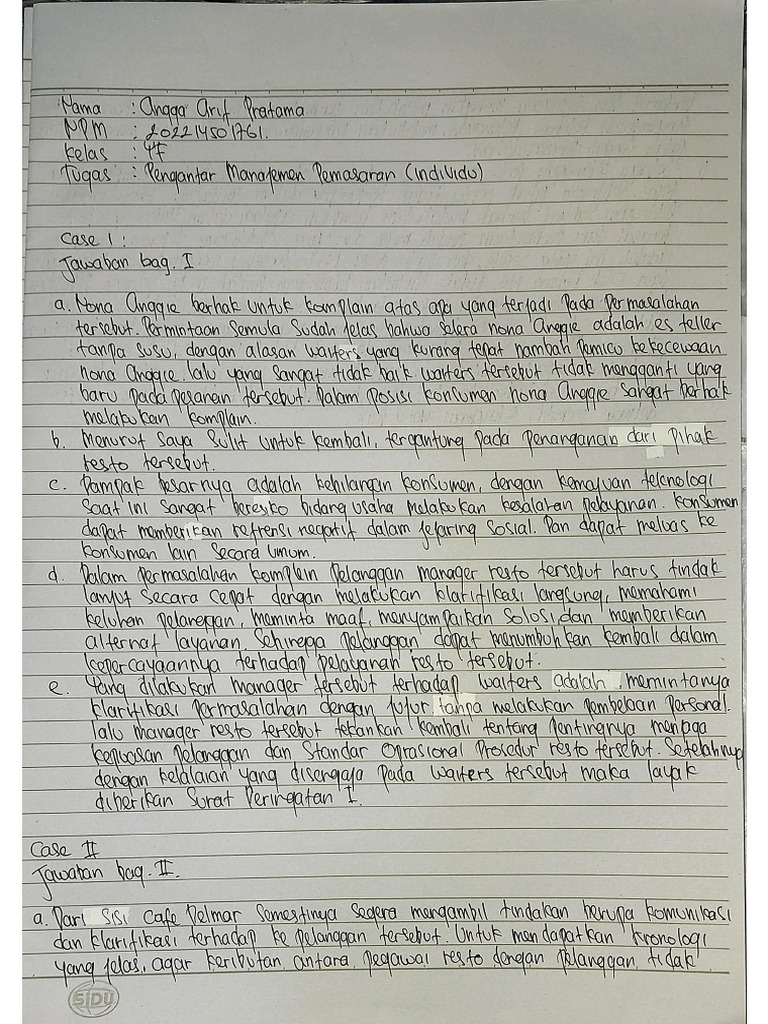 Nama : Angga Arif Pratama
NPM : 202214501761.
Kelas : 4F
Tugas : Pengantar Manajemen Pemasaran (individu)
Case I :
Jawaban bag. I
a. Nona Anggie berhak untuk komplain atas apa yang terjadi pada permasalahan
tersebut. Permintaan semula sudah jelas bahwa selera nona Anggie adalah es teller
tanpa susu, dengan alasan waiters yang kurang tepat nambah pemicu kekecewaan
nona Anggie. lalu yang sangat tidak baik waiters tersebut tidak mengganti yang
baru pada pesanan tersebut. Dalam posisi konsumen nona Anggie sangat berhak
melakukan komplain.
b. Menurut saya sulit untuk kembali, tergantung pada penanganan dari pihak
resto tersebut.
c. Dampak besarnya adalah kehilangan konsumen, dengan kemajuan teknologi
saat ini sangat beresko bidang usaha melakukan kesalahan pelayanan. Konsumen
dapat memberikan refrensi negatif dalam jejaring sosial. Dan dapat meluas ke
konsumen lain secara umum.
d. Dalam permasalahan komplein pelanggan manager resto tersebut harus tindak
lanjut secara cepat dengan melakukan klarifikasi langsung, memahami
keluhan pelanggan, meminta maaf, menyampaikan solosi, dan memberikan
alternaf layanan. Sehingga pelanggan dapat menumbuhkan kembali dalam
kepercayaannya terhadap pelayanan resto tersebut.
e. Yang dilakukan manager tersebut terhadap waiters adalah memintanya
klarifikasi permasalahan dengan jujur tanpa melakukan pembelaan personal.
lalu manager resto tersebut tekankan kembali tentang pentingnya menjaga
kepuasan pelanggan dan Standar Oprasional Prosedur resto tersebut. Setelahnya
dengan kelalaian yang disengaja pada waiters tersebut maka layak
diberikan Surat Peringatan I.
Case II
Jawaban bag. II.
a. Dari sisi Cafe Delmar semestinya segera mengambil tindakan berupa komunikasi
dan klarifikasi terhadap ke pelanggan tersebut. Untuk mendapatkan kronologi
yang jelas, agar keributan antara pegawai resto dengan pelanggan tidak
SIDU